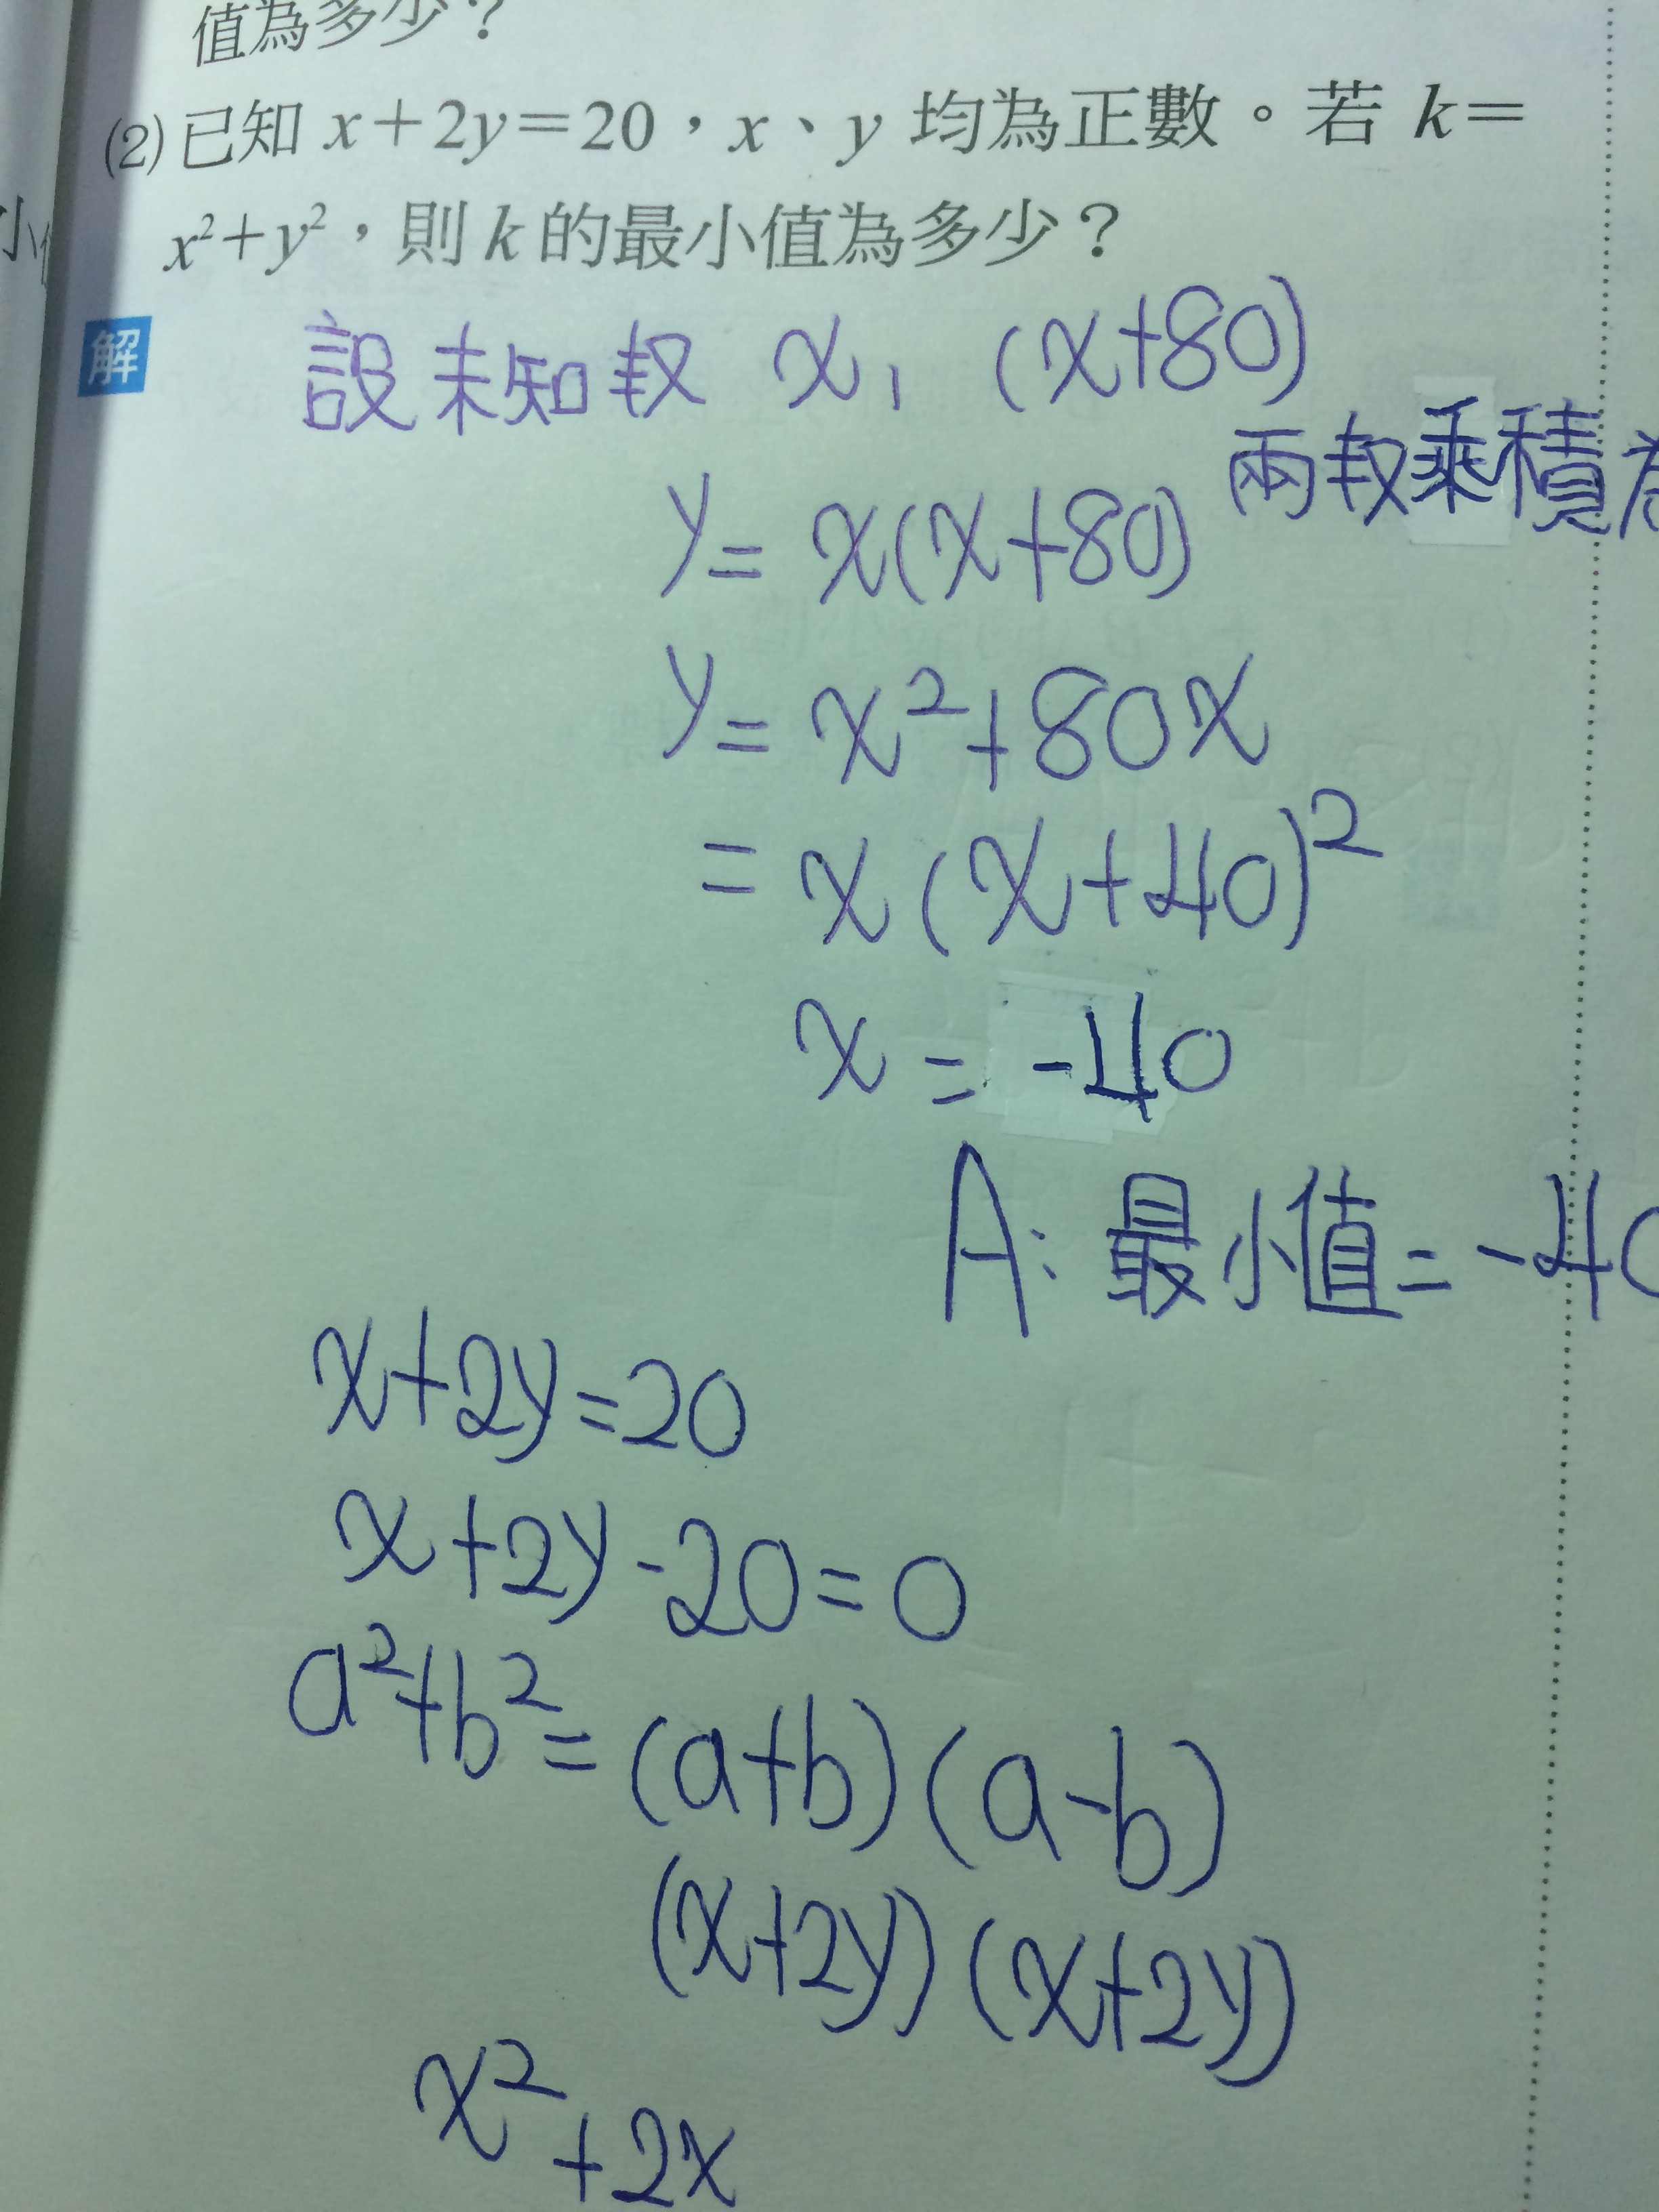 值為多少？
(2)已知 x+2y=20，x、y 均為正數。若 k=
x²+y²，則 k 的最小值為多少？
解
設未知 x, (x+80)
兩 乘積為
y= x(x+80)
y= x²+80x
= x(x+40)²
x = -40
A: 最小值=-40
x+2y=20
x+2y-20=0
a²+b²=(a+b)(a-b)
(x+2y)(x+2y)
x²+2x